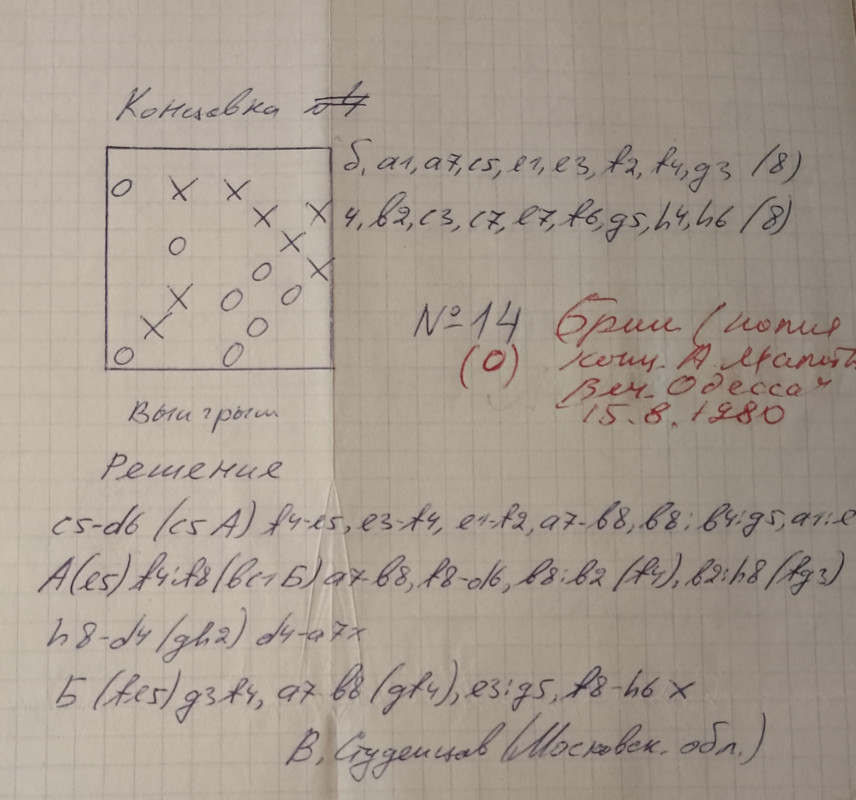 Концовка
б, a1, a7, c5, e1, e3, f2, f4, g3 (8)
ч, b2, c3, c7, e7, f6, g5, h4, h6 (8)
№ 14
(0)
конц. А.
Веч. Одесса"
15.8.1980
Выигрыш
Решение
c5-d6 (c5 A) f4-e5, e3-f4, e1-f2, a7-b8, b8:b4:g5, a1:e
А (e5) f4:f8 (bc1 Б) a7-b8, f8-d6, b8:b2 (f4), b2:h8 (fg3)
h8-d4 (gh2) d4-a7x
Б (fe5) g3f4, a7b8 (gf4), e3:g5, f8-h6 x
В. Студенцов (Московск. обл.)